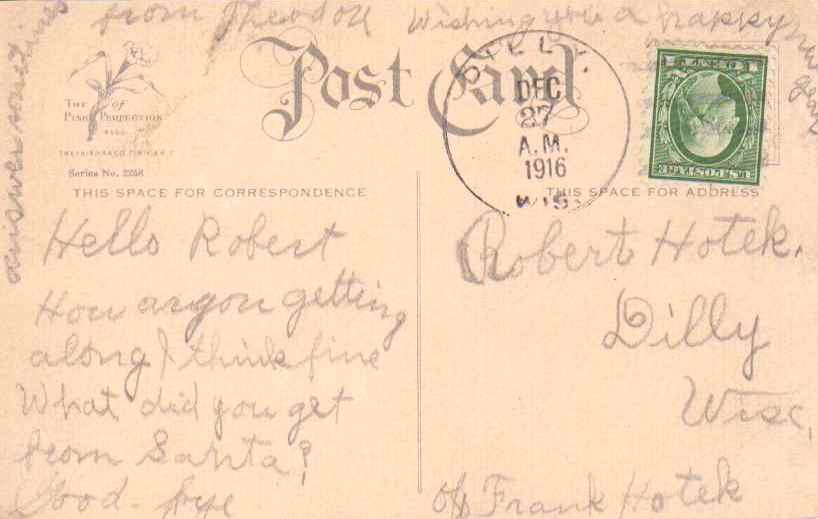 from Theodore Wishing you a happy new
year
answer sometimes
THE of
PINK PERFECTION
Series No. 2258
Post Card
DILLY.
DEC
27
A.M.
1916
WIS.
U.S. POSTAGE
1 CENT 1
THIS SPACE FOR CORRESPONDENCE
THIS SPACE FOR ADDRESS
Hello Robert
How are you getting
along I think fine
What did you get
from Santa?
Good-bye
Robert Hotek.
Dilly
Wisc,
c/o Frank Hotek